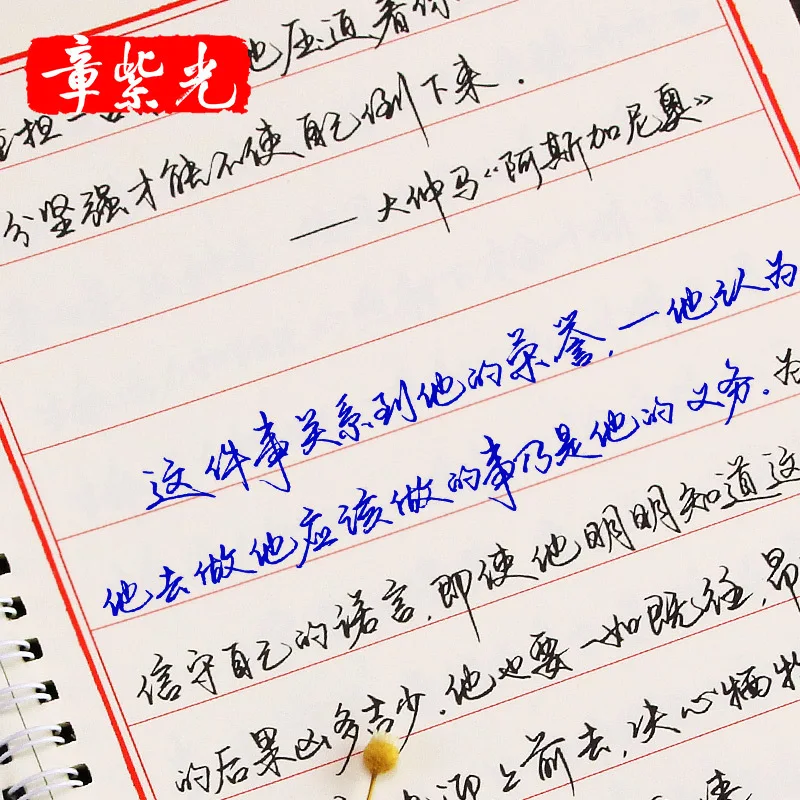 章紫光
他压迫着你
担一
分坚强才能不使自己倒下来.
——大仲马《阿斯加尼奥》
这件事关系到他的荣誉,一他认为
他去做他应该做的事乃是他的义务.为
信守自己的诺言,即使他明明知道这
的后果凶多吉少,他也要一如既往,昂
上前去,决心牺牲